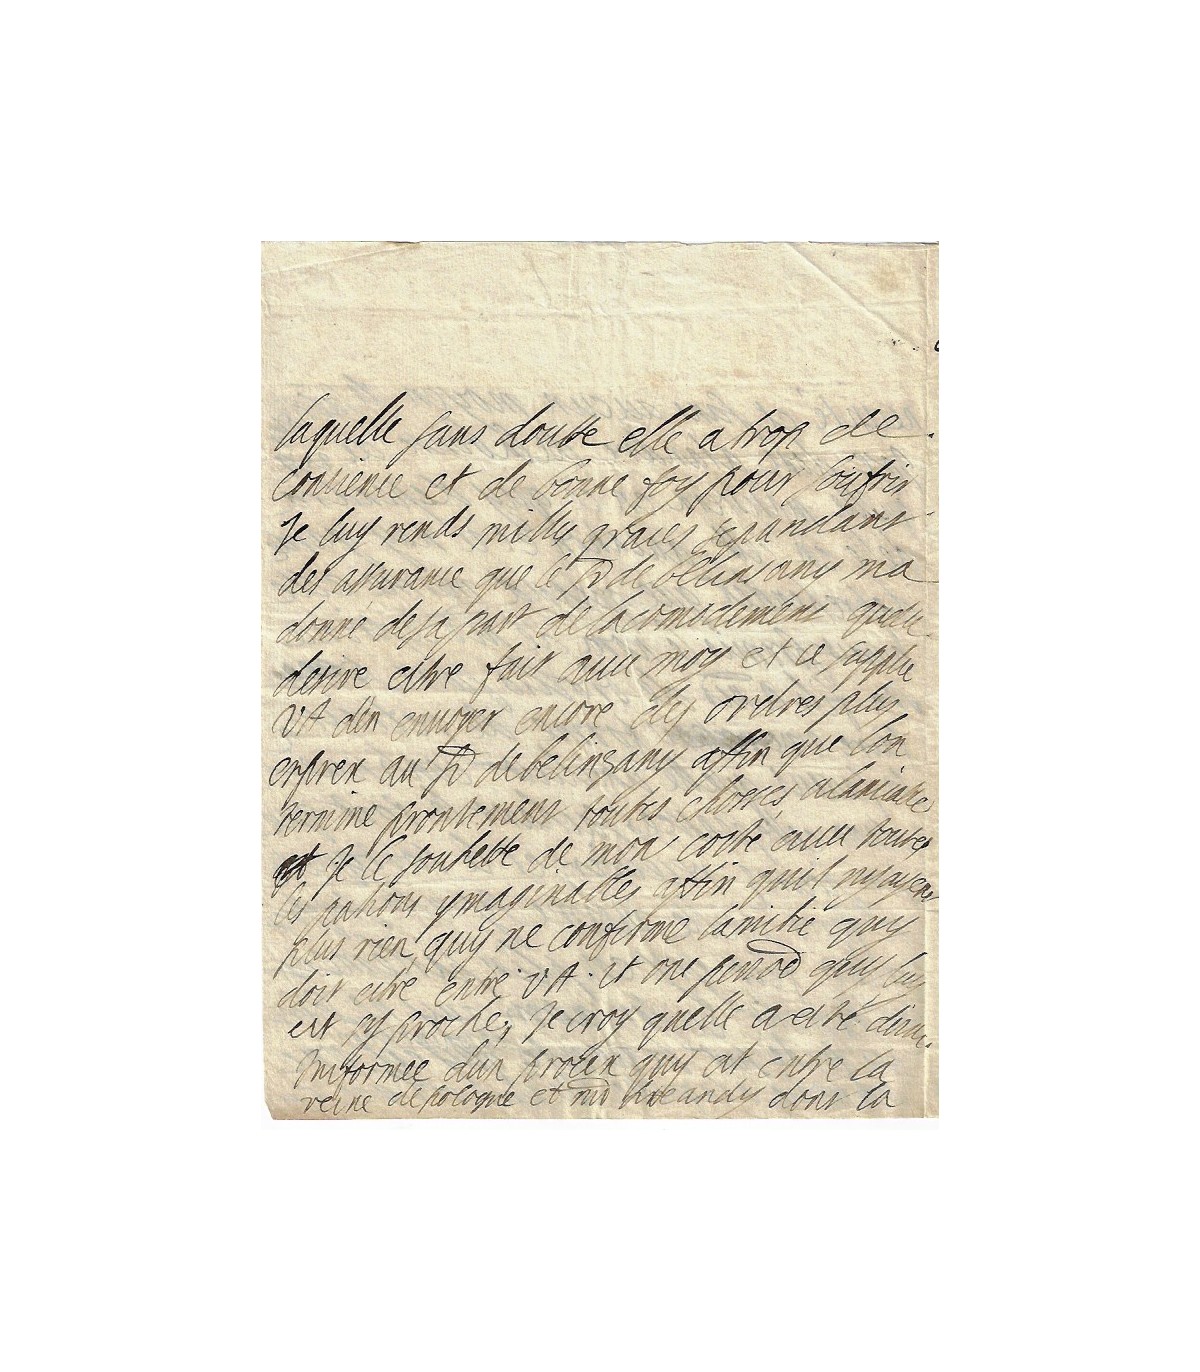 laquelle sans doutte elle a trop de
consience et de bonne foy pour soufrir
Je luy rends mille graces cepandant
des assurance que le P de belinsany ma
donné deja part de lacomodement quelle
desire estre fait avec moy et ie suplie
VA den envoyer encore des ordres plus
expres au P de belinsany affin que lon
termine prontement toutes choses alamiable
et Je le souhette de mon costé avec toutes
les pations ymaginables affin quil ny ayent
plus rien quy ne confirme lamitié quy
doit estre entre VA et une quy luy
est sy proche, Je croy quelle a esté
Informée dun procex quy est entre la
reine de pologne et dont la